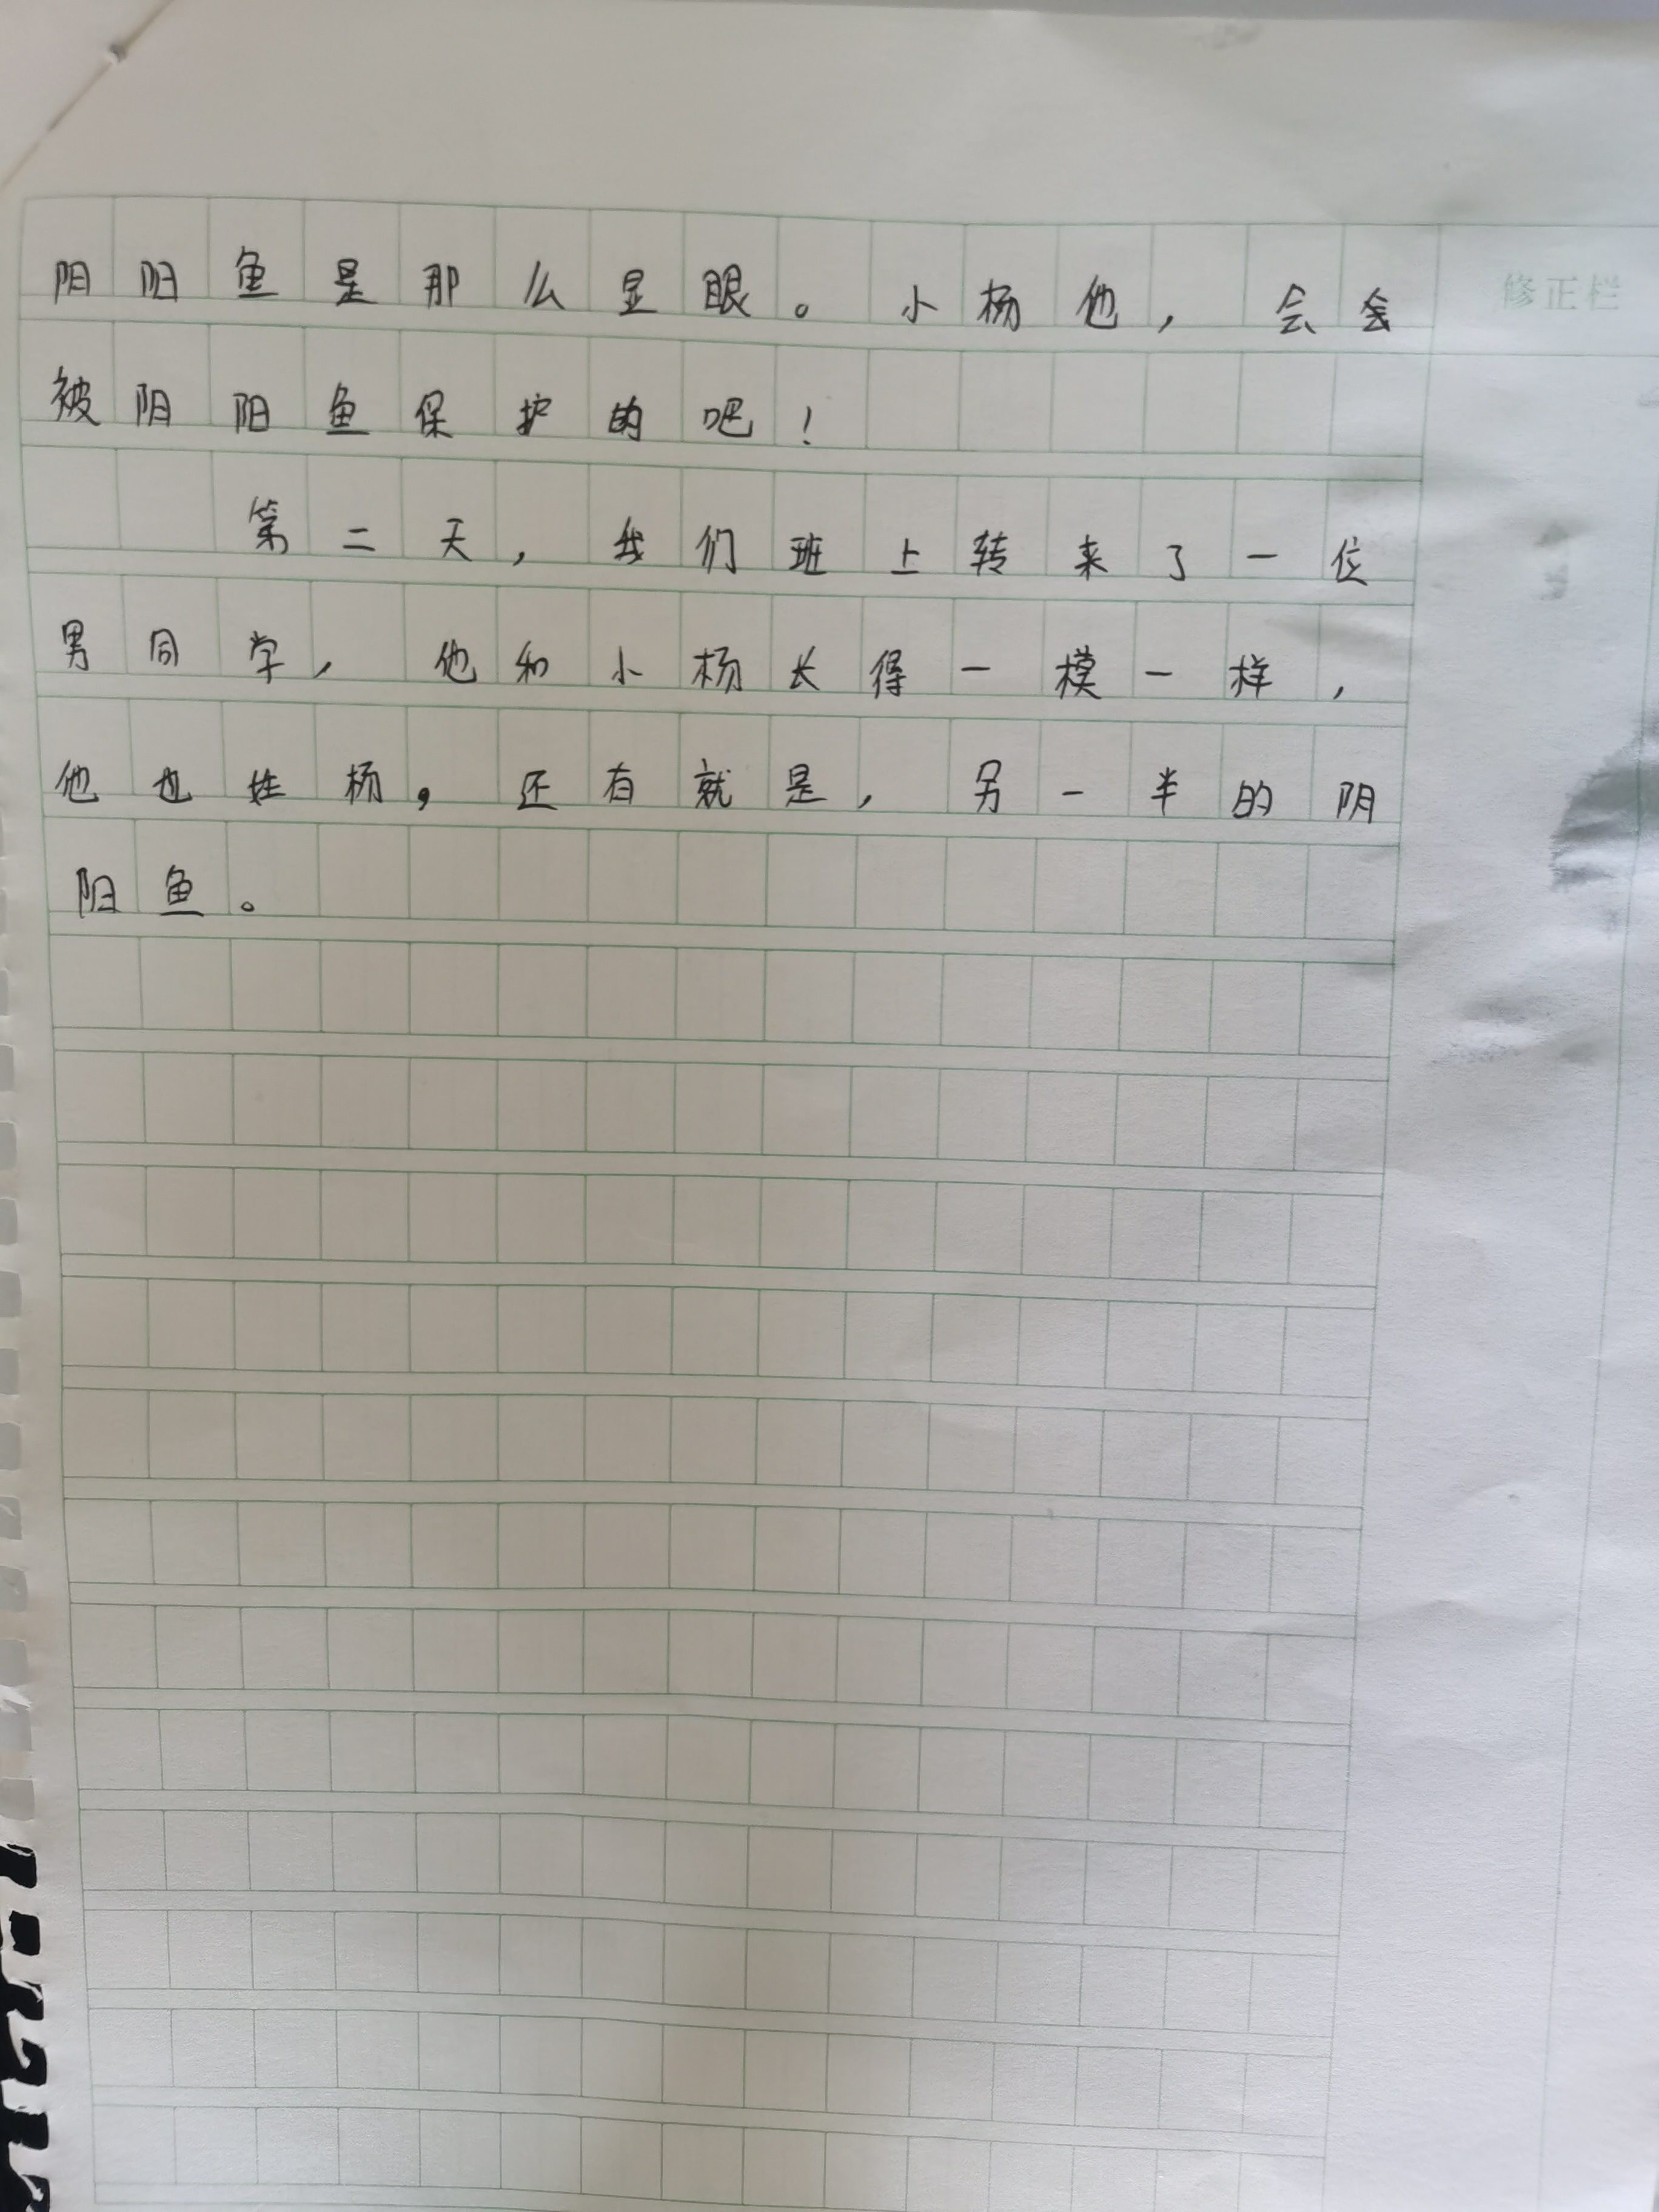 阴阳鱼是那么显眼。小杨他，会会
修正栏
被阴阳鱼保护的吧！
第二天，我们班上转来了一位
男同学，他和小杨长得一模一样，
他也姓杨，还有就是，另一半的阴
阳鱼。